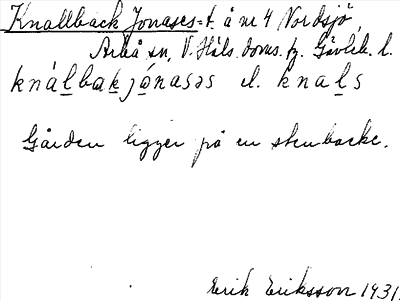 Knallback Jonases t. å nr 4 Nordsjö,
Arbrå sn, V. Häls. doms. fg. Gävleb. l.
knálbakjo̱nasəs el. knals
Gården ligger på en stenbacke.
Erik Eriksson 1931.